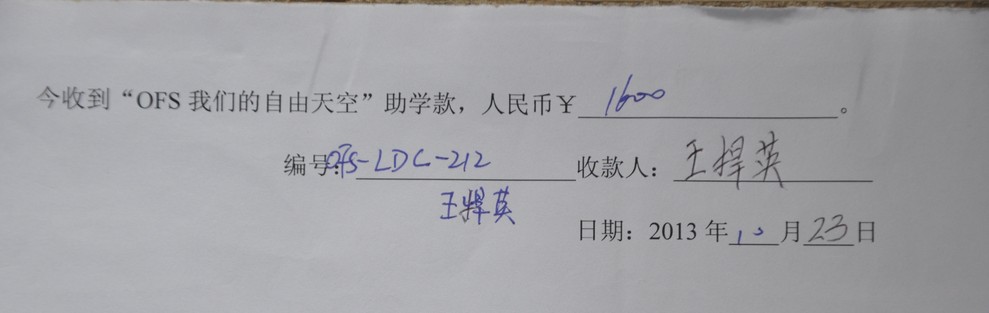 今收到“OFS 我们的自由天空”助学款，人民币￥ 1600 。
编号：OFS-LDC-212 收款人：王捍英
王捍英
日期：2013 年 10 月 23 日